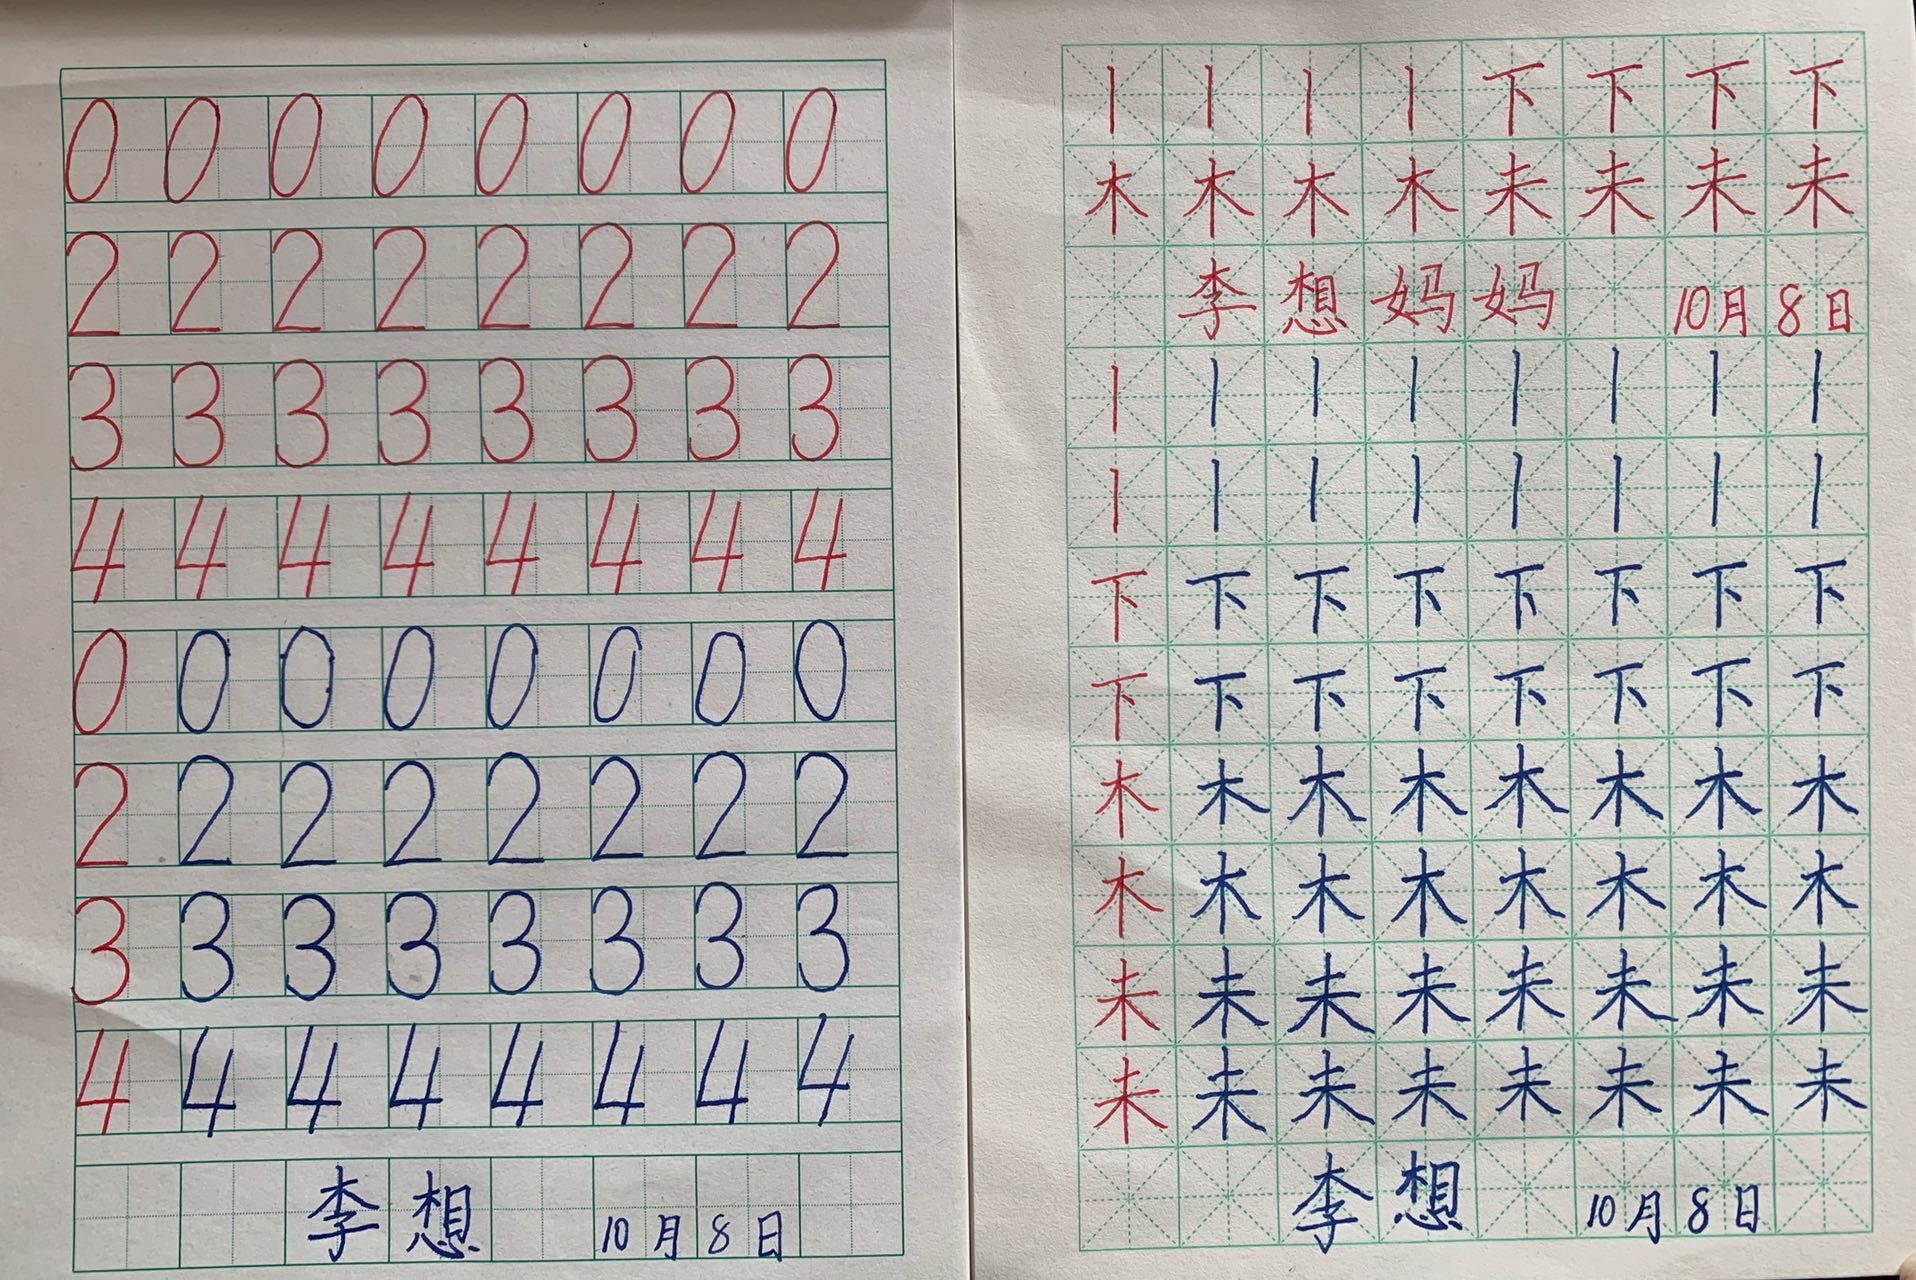 0 0 0 0 0 0 0 0
2 2 2 2 2 2 2 2
3 3 3 3 3 3 3 3
4 4 4 4 4 4 4 4
0 0 0 0 0 0 0 0
2 2 2 2 2 2 2 2
3 3 3 3 3 3 3 3
4 4 4 4 4 4 4 4
李想 10月8日
丨丨丨丨下下下下
木木木木未未未未
李想妈妈 10月8日
丨丨丨丨丨丨丨丨
丨丨丨丨丨丨丨丨
下下下下下下下下
下下下下下下下下
木木木木木木木木
木木木木木木木木
未未未未未未未未
未未未未未未未未
李想 10月8日